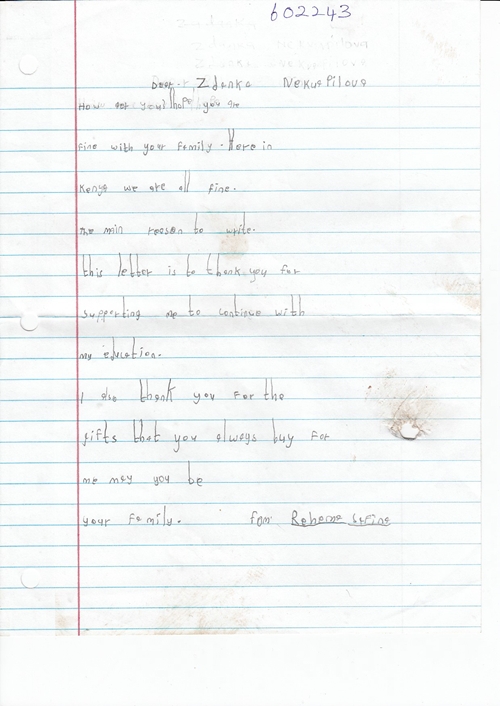 602243
Dear, Zdenka Nekuspilova
How are you? I hope you are
fine with your family. Here in
Kenya we are all fine.
the min reason to write.
this letter is to thank you for
supporting me to contiue with
my education.
I also thank you For the
gifts that you always buy For
me may you be
your Family. fom Rehema